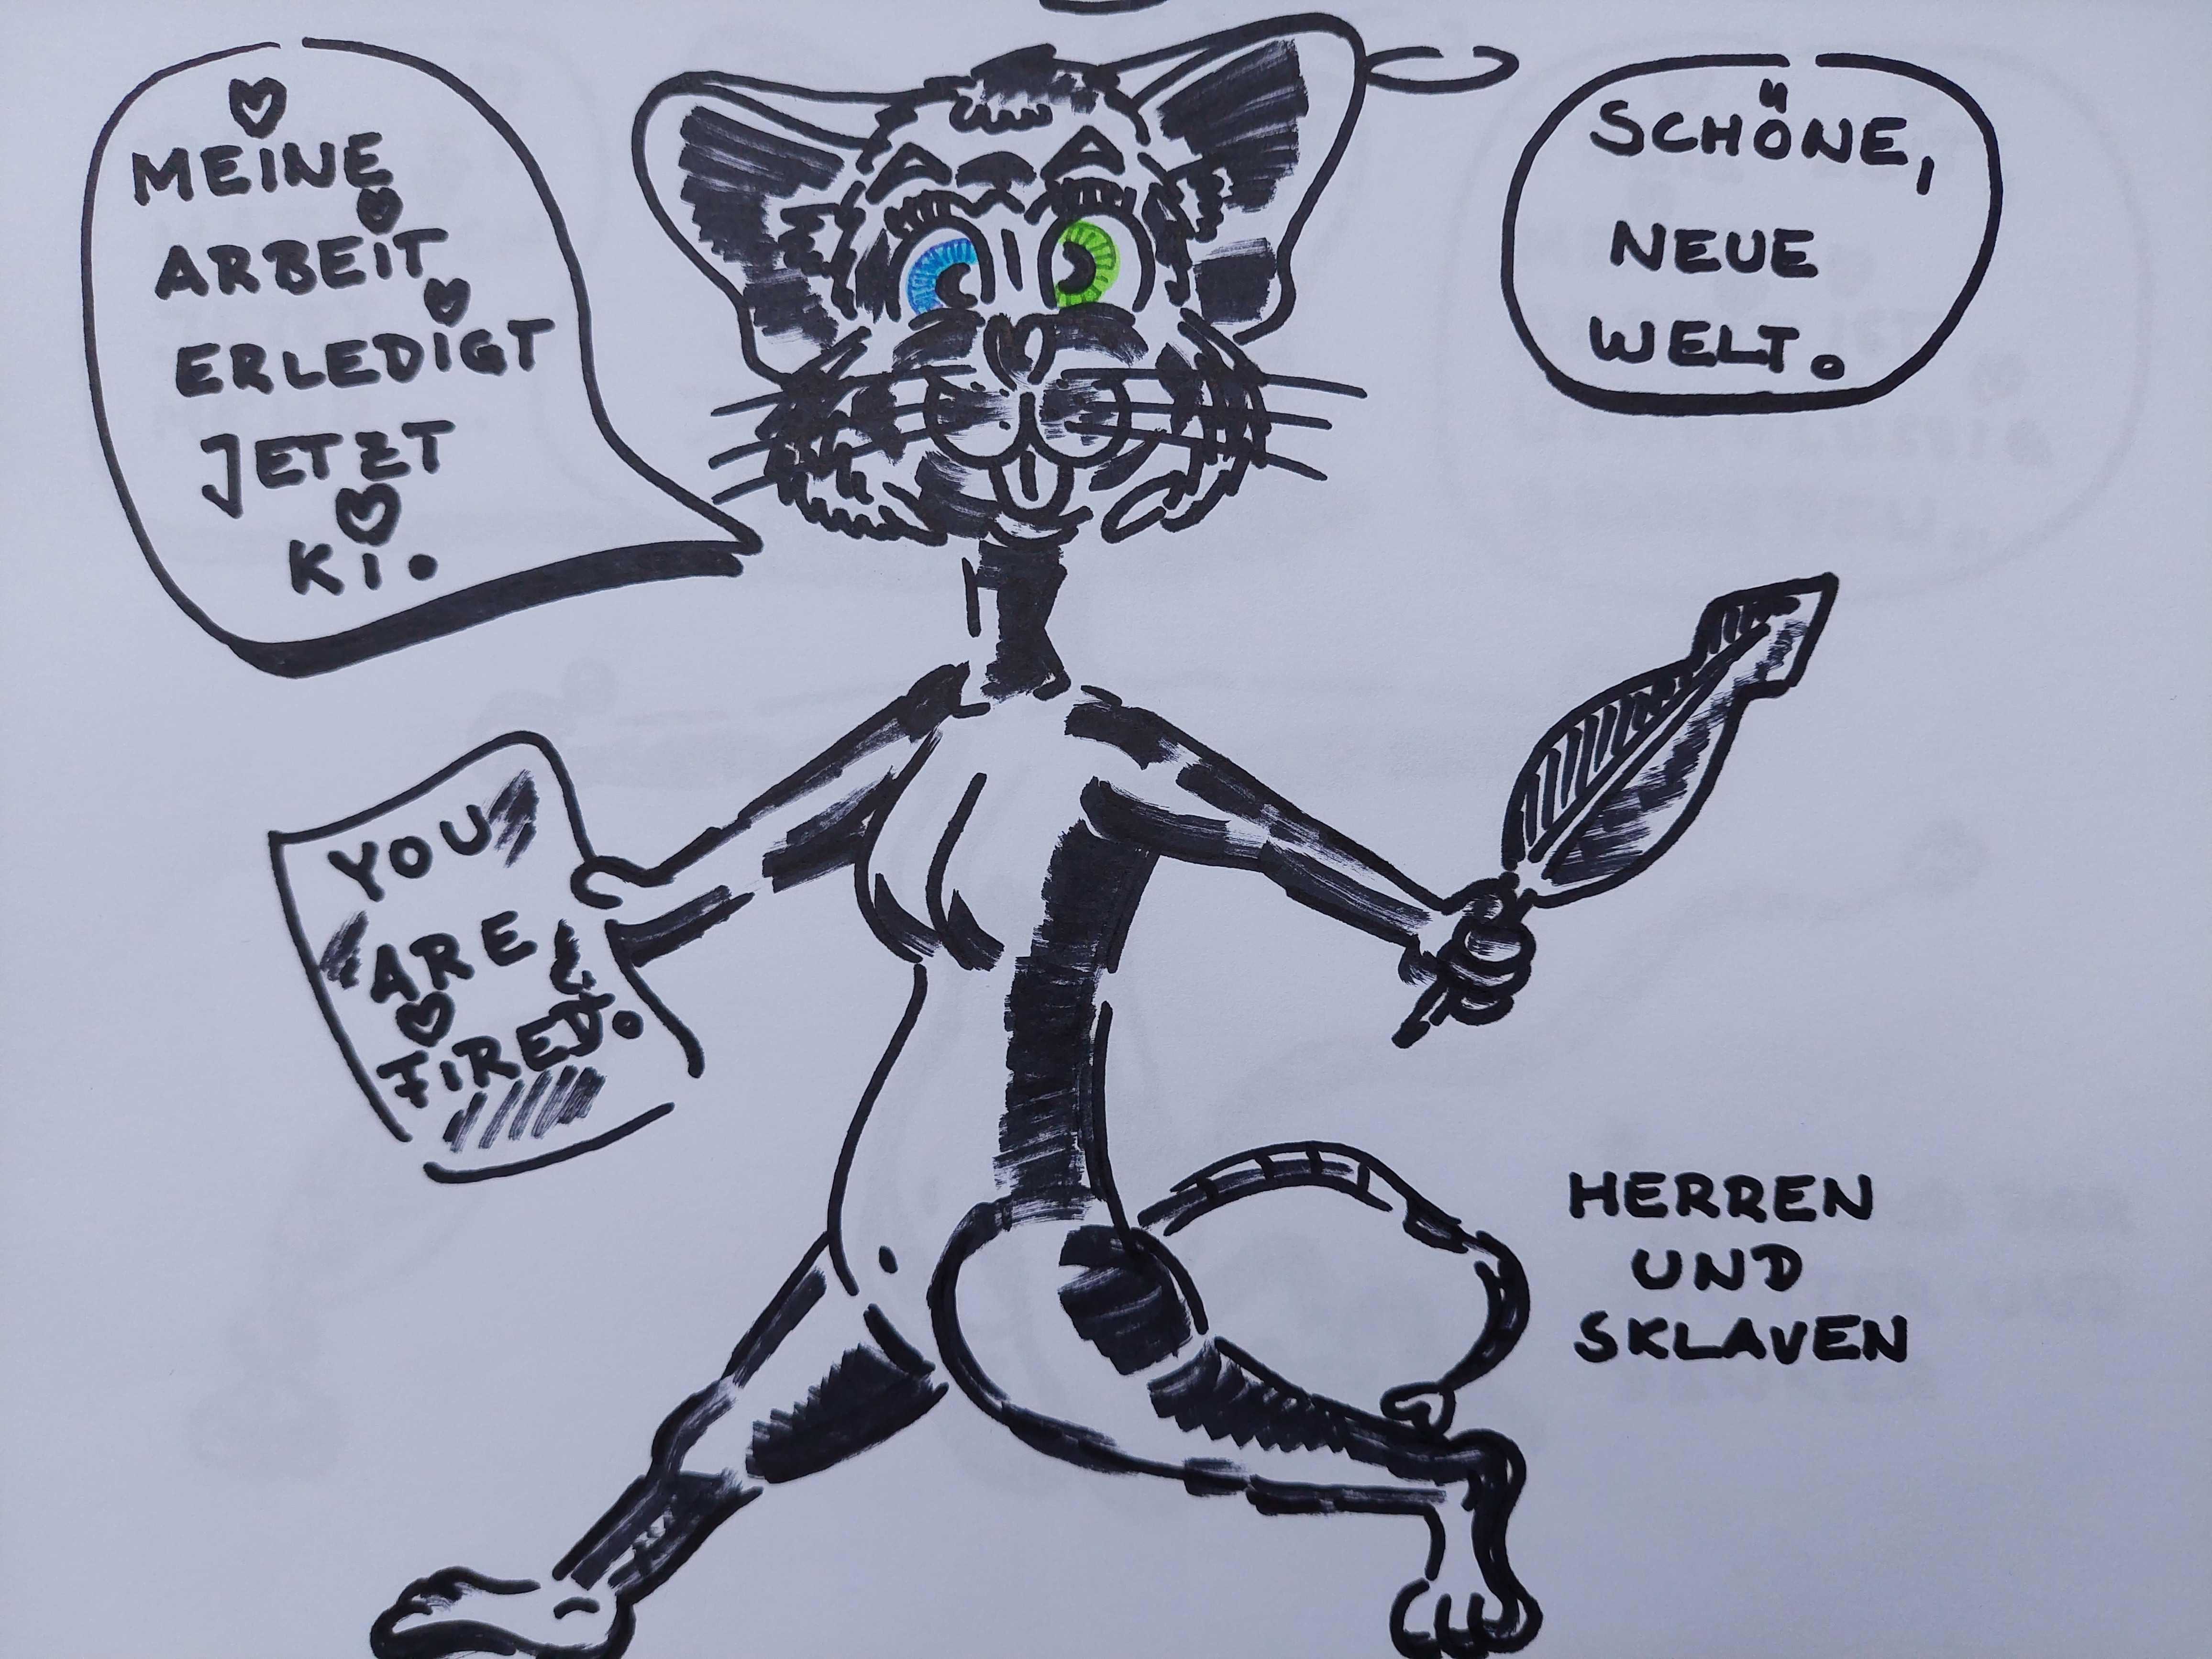 MEINE
ARBEIT
ERLEDIGT
JETZT
Ki.
SCHÖNE,
NEUE
WELT.
YOU
ARE
FIRED.
HERREN
UND
SKLAVEN